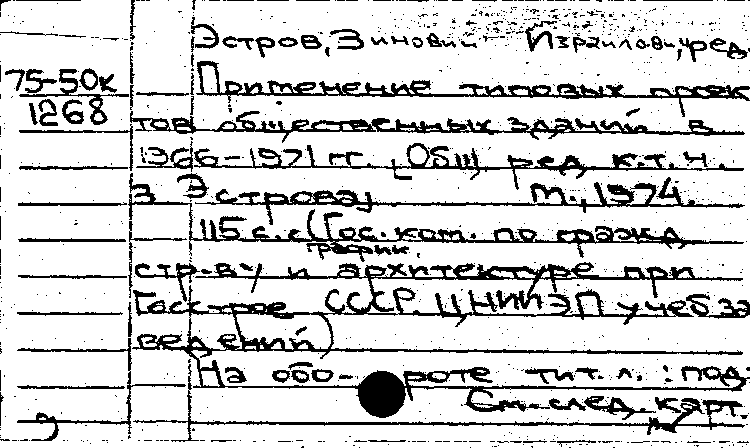 Эстров, Зиновий Израилович, ред.
75-50к
1268
Применение типовых проек
тов общественных зданий в
1966-1971 гг. [Общ. ред. к.т.н.
З. Эстрова].
М., 1974.
115 с. с график. (Гос. ком. по гражд.
стр-ву и архитектуре при
Госстрое СССР. ЦНИИЭП учеб за
ведений)
На обо-роте тит. л.: под
См. след. карт.